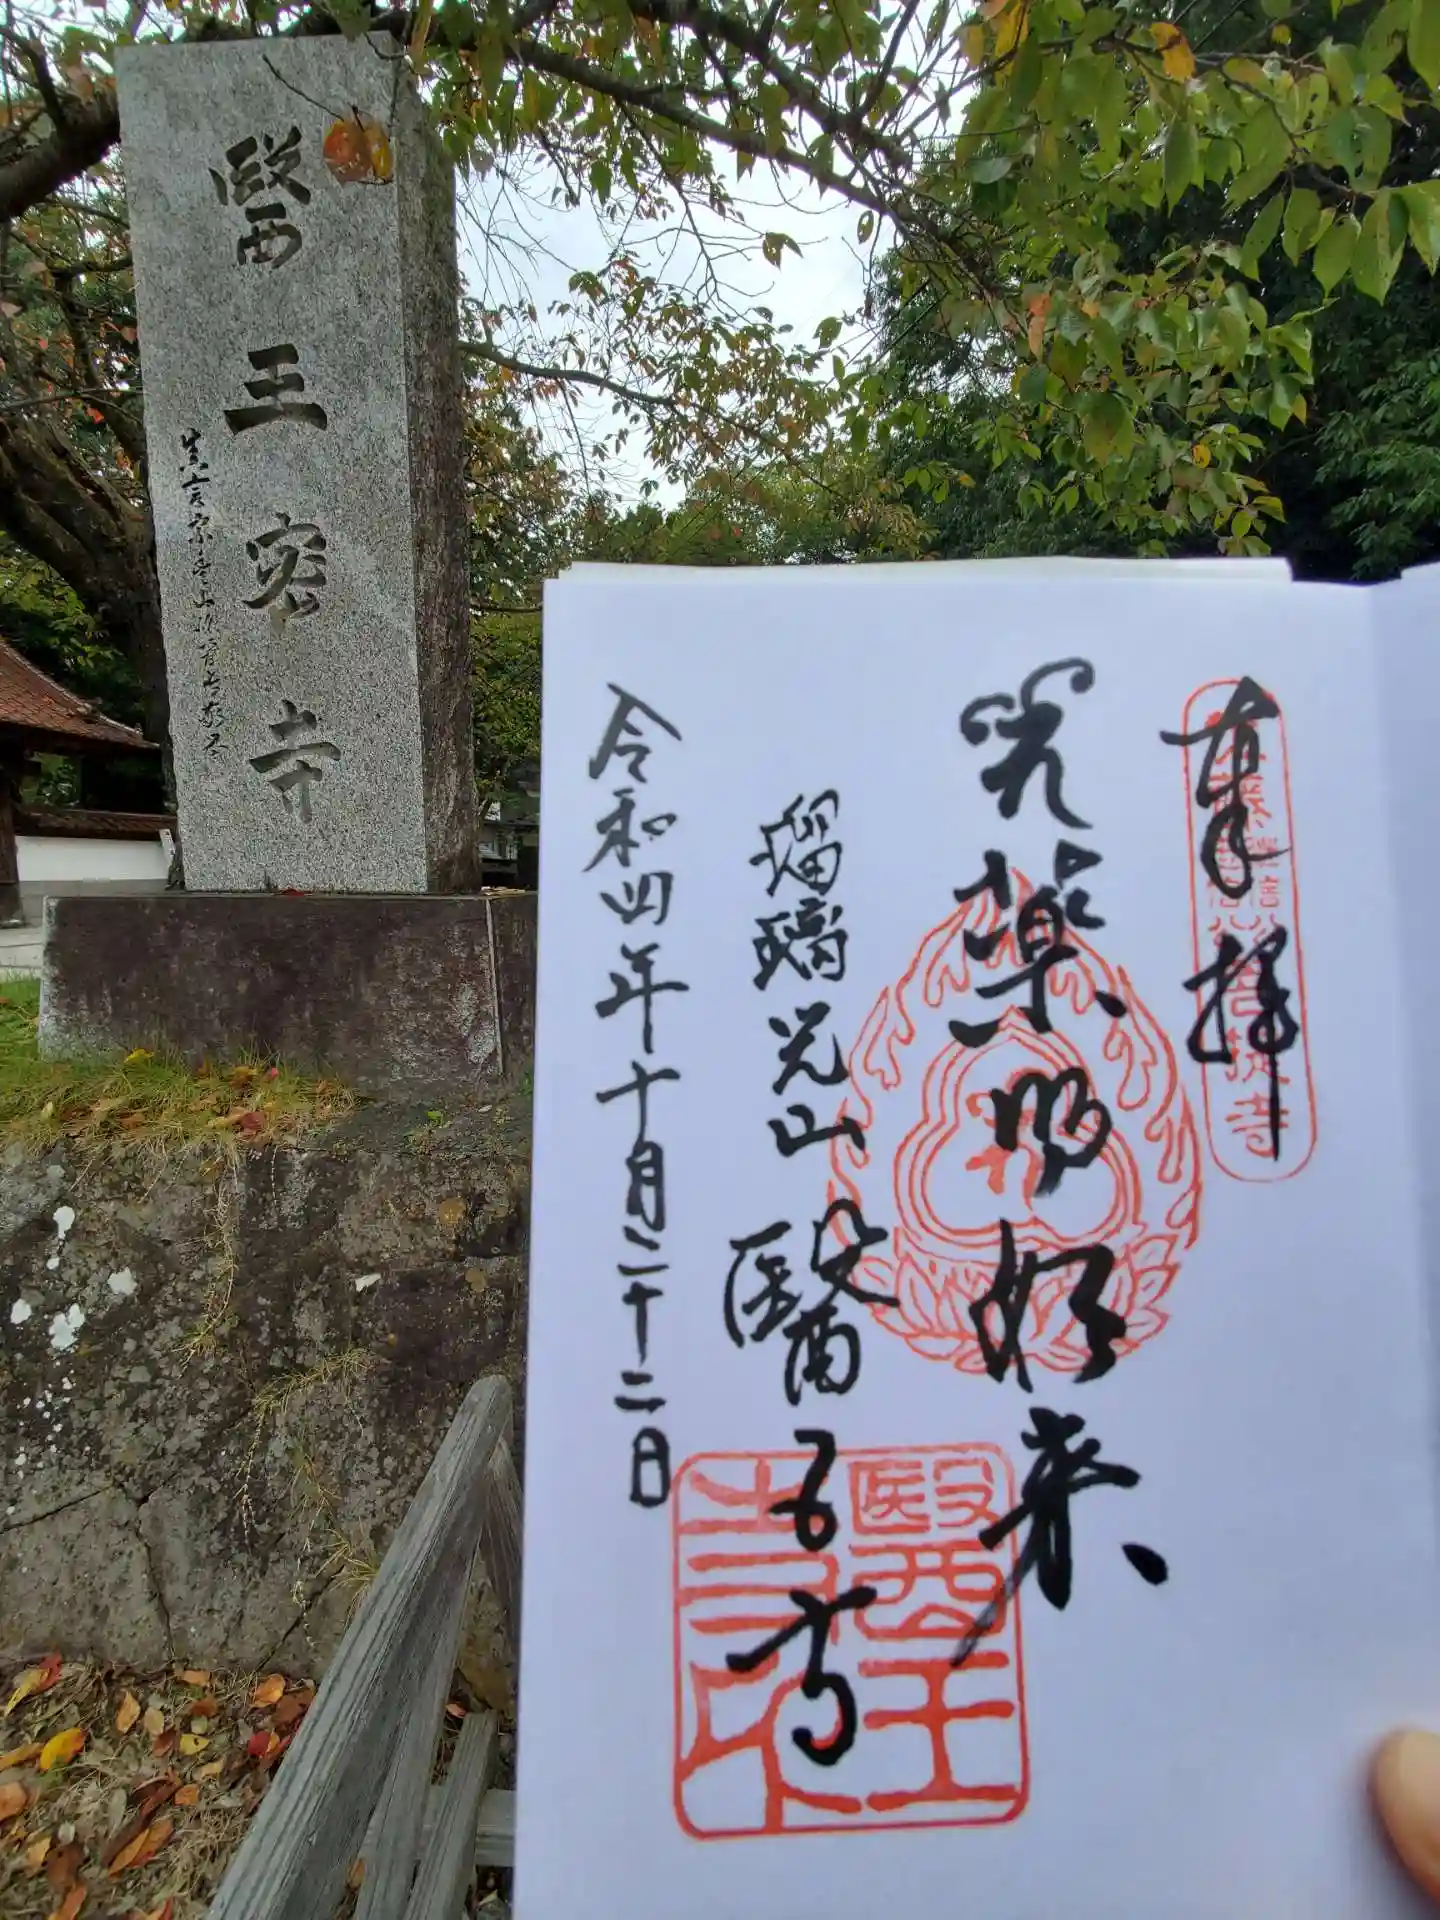 醫王密寺
奉拝
薬師如来
瑠璃光山
醫王寺
令和四年十月二十二日
醫王
寺印